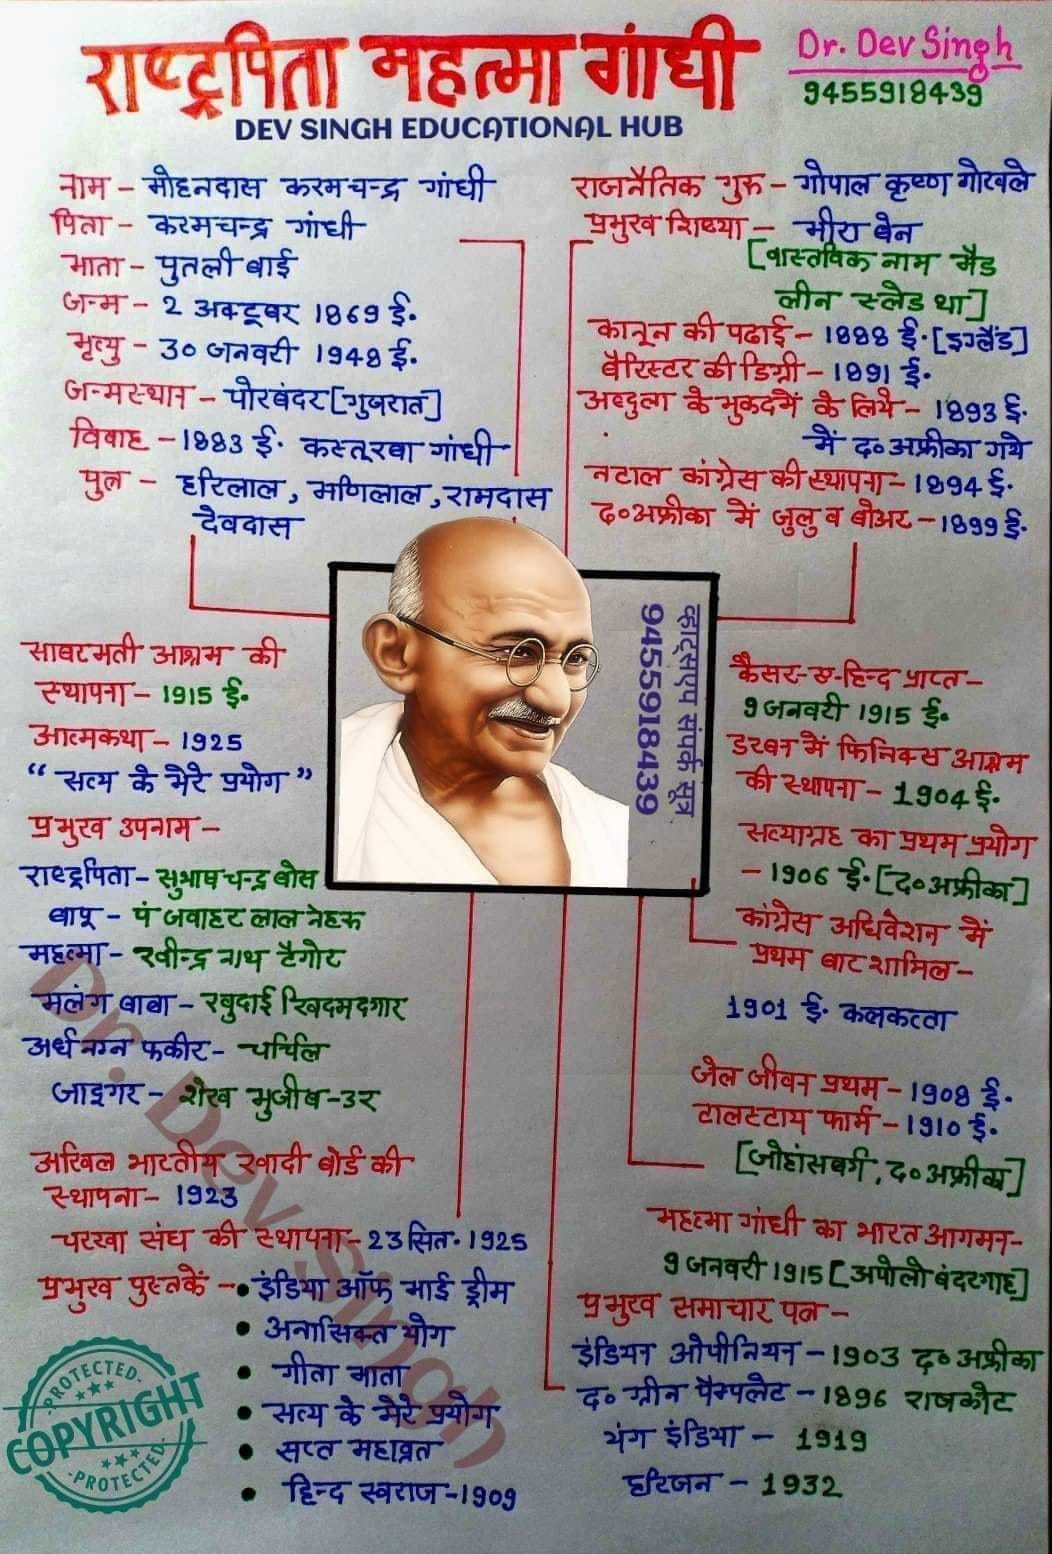 राष्ट्रपिता महत्मा गांधी
Dr. Dev Singh
9455918439
DEV SINGH EDUCATIONAL HUB
नाम - मोहनदास करमचन्द्र गांधी
पिता - करमचन्द्र गांधी
माता - पुतली बाई
जन्म - 2 अक्टूबर 1869 ई॰
मृत्यु - 30 जनवरी 1948 ई॰
जन्मस्थान - पोरबंदर [गुजरात]
विवाह - 1883 ई॰ कस्तूरबा गांधी
पुत्र - हरिलाल, मणिलाल, रामदास
देवदास
राजनैतिक गुरु - गोपाल कृष्ण गोखले
प्रमुख शिष्या - मीरा बेन
[वास्तविक नाम मैड
लीन स्लेड था]
कानून की पढाई - 1888 ई॰ [इग्लैंड]
बैरिस्टर की डिग्री - 1891 ई॰
अब्दुला के मुकदमें के लिये - 1893 ई॰
में द० अफ्रीका गये
नटाल कांग्रेस की स्थापना - 1894 ई॰
द०अफ्रीका में जुलु व बोअर - 1899 ई॰
साबरमती आश्रम की
स्थापना - 1915 ई॰
आत्मकथा - 1925
“ सत्य के मेरे प्रयोग ”
प्रमुख उपनाम -
राष्ट्रपिता - सुभाष चन्द्र बोस
बापू - पं जवाहर लाल नेहरू
महत्मा - रवीन्द्र नाथ टैगोर
मलंग बाबा - खुदाई खिदमदगार
अर्ध नग्न फकीर - चर्चिल
जाइगर - शेख मुजीब-उर
अखिल भारतीय खादी बोर्ड की
स्थापना - 1923
चरखा संघ की स्थापना - 23 सित॰ 1925
प्रमुख पुस्तकें - • इंडिया ऑफ माई ड्रीम
• अनासक्ति योग
• गीता माता
• सत्य के मेरे प्रयोग
• सप्त महाव्रत
• हिन्द स्वराज -1909
व्हाट्सएप संपर्क सूत्र
9455918439
कैसर-ए-हिन्द प्राप्त -
9 जनवरी 1915 ई॰
डरबन में फिनिक्स आश्रम
की स्थापना - 1904 ई॰
सत्याग्रह का प्रथम प्रयोग
- 1906 ई॰ [द०अफ्रीका]
कांग्रेस अधिवेशन में
प्रथम बार शामिल -
1901 ई॰ कलकत्ता
जेल जीवन प्रथम - 1908 ई॰
टालस्टाय फार्म - 1910 ई॰
[जोहांसबर्ग, द०अफ्रीका]
महत्मा गांधी का भारत आगमन -
9 जनवरी 1915 [अपोलो बंदरगाह]
प्रमुख समाचार पत्र -
इंडियन ओपीनियन - 1903 द० अफ्रीका
द० ग्रीन पैम्पलेट - 1896 राजकोट
यंग इंडिया - 1919
हरिजन - 1932
Dr. Dev Singh
PROTECTED
COPYRIGHT
PROTECTED